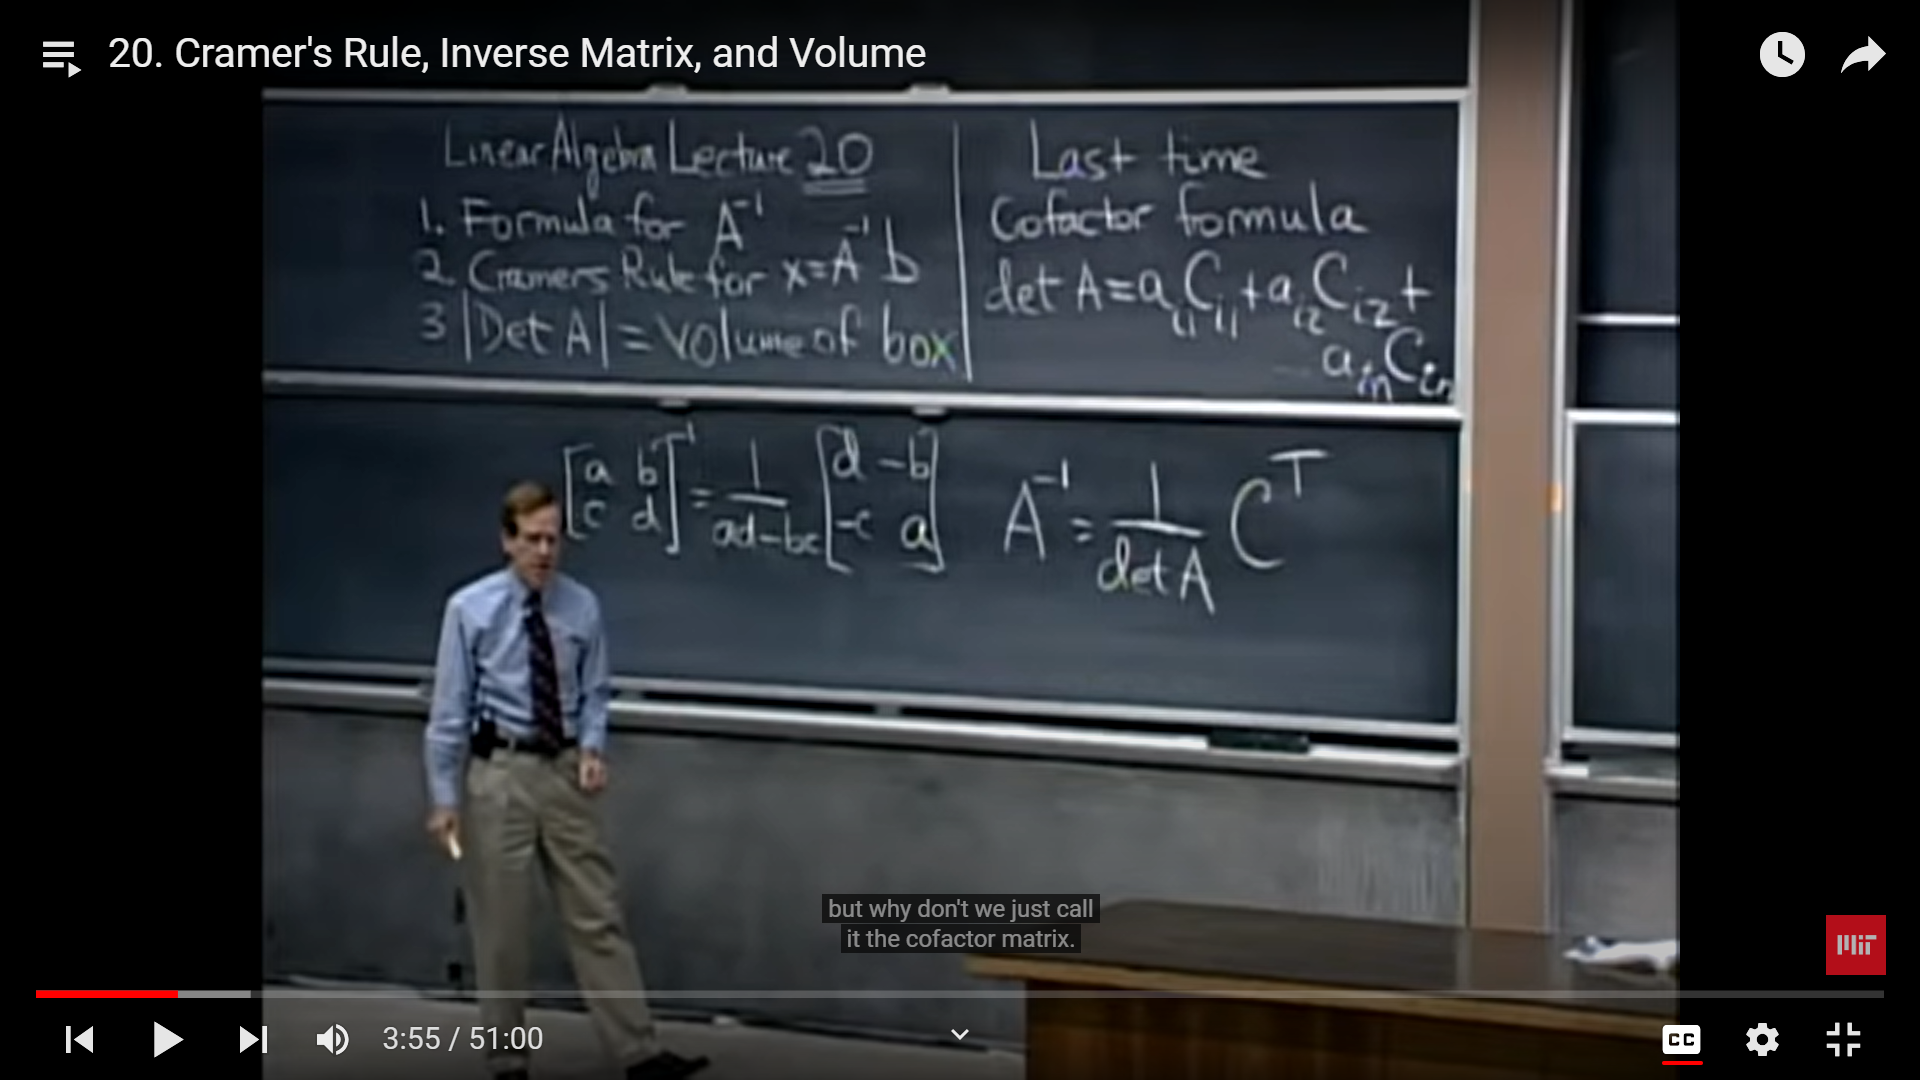 20. Cramer's Rule, Inverse Matrix, and Volume
Linear Algebra Lecture 20
1. Formula for A⁻¹
2 Cramers Rule for x=A⁻¹b
3 |Det A| = volume of box
Last time
Cofactor formula
det A=a₁₁C₁₁+a₁₂C₁₂+
... a₁ₙC₁ₙ
[a b; c d]⁻¹ = 1/(ad-bc) [d -b; -c a]
A⁻¹ = 1/(det A) Cᵀ
but why don't we just call
it the cofactor matrix.
MIT
3:55 / 51:00
CC